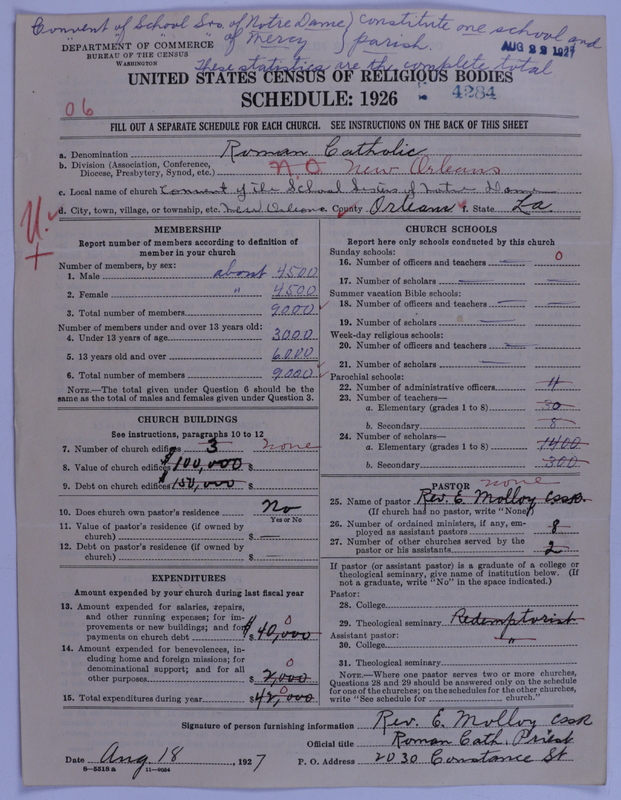 Convent of School Srs. of Notre Dame) constitute one school and
of Mercy } parish.
DEPARTMENT OF COMMERCE
BUREAU OF THE CENSUS
WASHINGTON
AUG 22 1927
These statistics are the complete total
UNITED STATES CENSUS OF RELIGIOUS BODIES
SCHEDULE: 1926
4284
06
FILL OUT A SEPARATE SCHEDULE FOR EACH CHURCH. SEE INSTRUCTIONS ON THE BACK OF THIS SHEET
a. Denomination Roman Catholic
b. Division (Association, Conference,
Diocese, Presbytery, Synod, etc.) N.O. New Orleans
c. Local name of church Convent of the School Sisters of Notre Dame
d. City, town, village, or township, etc. New Orleans County Orleans f. State La.
U.
MEMBERSHIP
Report number of members according to definition of
member in your church
Number of members, by sex:
1. Male about 4500
2. Female " 4500
3. Total number of members 9000
Number of members under and over 13 years old:
4. Under 13 years of age 3000
5. 13 years old and over 6000
6. Total number of members 9000
NOTE.—The total given under Question 6 should be the
same as the total of males and females given under Question 3.
CHURCH BUILDINGS
See instructions, paragraphs 10 to 12
7. Number of church edifices 3 none
8. Value of church edifices $100,000 $
9. Debt on church edifices $150,000 $
10. Does church own pastor's residence No
Yes or No
11. Value of pastor's residence (if owned by
church) $ —
12. Debt on pastor's residence (if owned by
church) $ —
EXPENDITURES
Amount expended by your church during last fiscal year
13. Amount expended for salaries, repairs,
and other running expenses; for im-
provements or new buildings; and for 0
payments on church debt $ 40,000
14. Amount expended for benevolences, in-
cluding home and foreign missions; for
denominational support; and for all 0
other purposes $ 2,000
15. Total expenditures during year $ 42,000 0
CHURCH SCHOOLS
Report here only schools conducted by this church
Sunday schools:
16. Number of officers and teachers — 0
17. Number of scholars —
Summer vacation Bible schools:
18. Number of officers and teachers —
19. Number of scholars —
Week-day religious schools:
20. Number of officers and teachers —
21. Number of scholars —
Parochial schools:
22. Number of administrative officers 4
23. Number of teachers—
a. Elementary (grades 1 to 8) 30
b. Secondary 8
24. Number of scholars—
a. Elementary (grades 1 to 8) 1400
b. Secondary 300
PASTOR none
25. Name of pastor Rev. E. Molloy CSSR.
(If church had no pastor, write "None")
26. Number of ordained ministers, if any, em-
ployed as assistant pastors 8
27. Number of other churches served by the
pastor or his assistants 2
If pastor (or assistant pastor) is a graduate of a college or
theological seminary, give name of institution below. (If
not a graduate, write "No" in the space indicated.)
Pastor:
28. College
29. Theological seminary Redemptorist
Assistant pastor:
30. College "
31. Theological seminary
NOTE.—Where one pastor serves two or more churches,
Questions 28 and 29 should be answered only on the schedule
for one of the churches; on the schedules for the other churches,
write "See schedule for church."
Signature of person furnishing information Rev. E. Molloy CSSR
Official title Roman Cath. Priest
Date Aug 18, 1927 P. O. Address 2030 Constance St
8—5518 a 11—9024